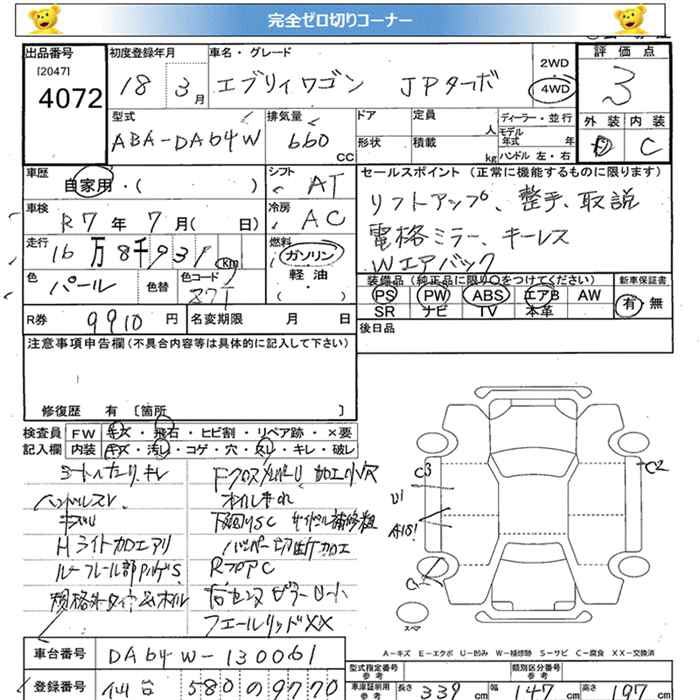 完全ゼロ切りコーナー
出品番号 初度登録年月 車名・グレード 評価点
[2047]
4072 18 3月 エブリィワゴン JPターボ 2WD 4WD 3
型式 排気量 ドア 定員 人 ディーラー・並行 外装 内装
ABA-DA64W 660 CC 形状 積載 kg モデル年式 年 ハンドル 左・右 D C
車歴 シフト セールスポイント (正常に機能するものに限ります)
自家用・( ) AT リフトアップ、整手、取説
車検 冷房
R7年 7月( 日) AC 電格ミラー、キーレス
走行 燃料
16万8千931km ガソリン Wエアバック
色 色替 色コード 軽油
パール ( ) 装備品 (純正品に限り○をつけてください) 新車保証書
PS PW ABS エアB AW 有・無
SR ナビ TV 本革
R券 9910円 名変期限 月 日 後日品
注意事項申告欄(不具合内容等は具体的に記入して下さい)
修復歴 有 [箇所 ]
検査員 FW キズ・飛石・ヒビ割・リペア跡・×要
記入欄 内装 キズ・汚レ・コゲ・穴・スレ・キレ・破レ
キレ 加工小穴
ハンドルスレ オイルもれ
キズU 下廻りSC サイドシル補修
Hライト加工アリ バンパー切断加工
ルーフレール部 S RフロアC
規格外タイヤ ホイル
フューエルリッドXX
C3 C2
U1
スペア
A-キズ E-エクボ U-凹み W-補修跡 S-サビ C-腐食 XX-交換済
車台番号 DA64W-130061 型式指定番号 参考 類別区分番号 参考
登録番号 仙台 580 の 9770 車庫証明用 参考 長さ 339cm 幅 147cm 高さ 197cm